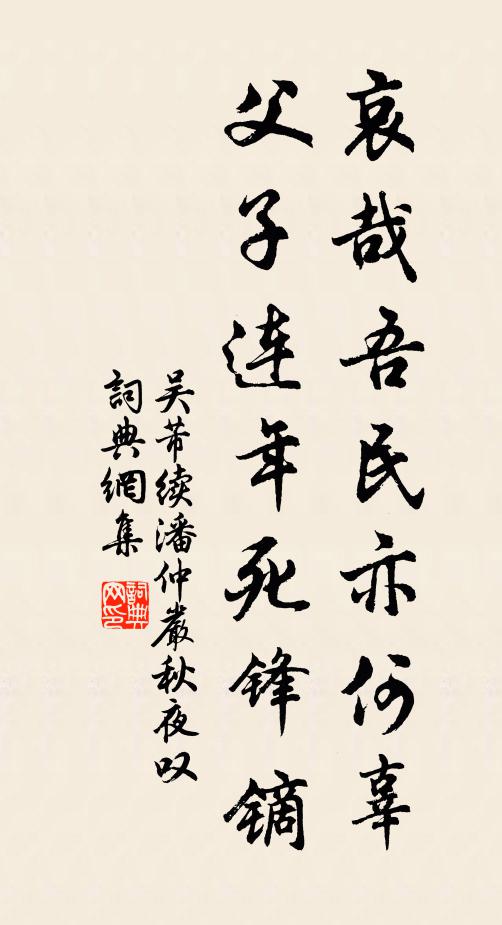 哀哉吾民亦何辜
父子连年死锋镝
吴芾续潘仲严秋夜叹
詞典網集
詞典
网印